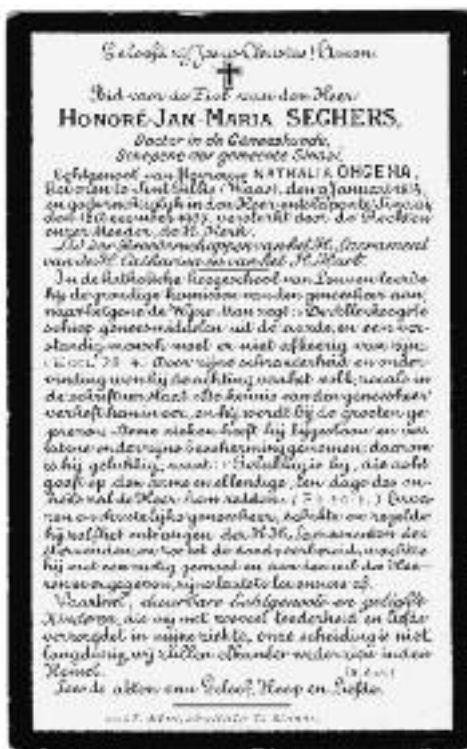 Geloofd zij Jesus Christus! Amen.
Bid voor de Ziel van den Heer
HONORÉ-JAN-MARIA SEGHERS,
Doctor in de Geneeskunde,
Schepene der gemeente Sinaai,
Echtgenoot van Mevrouw NATHALIA ONGENA,
Geboren te Sint Gillis (Waas), den 9 Januari
en godvruchtiglijk in den Heer ontslapen te Sinaai
den 12 December versterkt door de Rechten
onzer Moeder de H. Kerk.
Lid der Broederschappen van het H. Sacrament
van de H. Catharina en van het H. Hart.
In de katholieke hoogeschool van Leuven leerde
hij de grondige kennissen van den geneesheer aan,
naar hetgene de Wijze Man zegt: De Allerhoogste
schiep geneesmiddelen uit de aarde, en een ver-
standig mensch moet er niet afkeerig van zijn.
Door zijne schranderheid en onder-
vinding won hij de achting van het volk, zooals in
de schriftuur staat: De kennis van den geneesheer
verheft hem in eer, en hij wordt bij de grooten ge-
prezen. Arme zieken heeft hij bijgestaan en
onder zijne bescherming genomen; daarom
is hij gelukkig, want: Gelukkig is hij, die acht
geeft op den arme en ellendige, ten dage des on-
heils zal de Heer hem redden.
christelijke geneesheer, schikte en regelde
hij zelf het ontvangen der H.H. Sacramenten der
Stervenden, en tot de eeuwigheid, wachtte
hij met een rustig gemoed en aan den wil des Hee-
ren overgegeven, zijne laatste levensure af.
Vaarwel, dierbare Echtgenoote en geliefde
Kinderen, die mij met zooveel teederheid en liefde
verzorgdet in mijne ziekte, onze scheiding is niet
langdurig, wij zullen elkander wederzien in den
Hemel.
Leer de akten van Geloof, Hoop en Liefde.